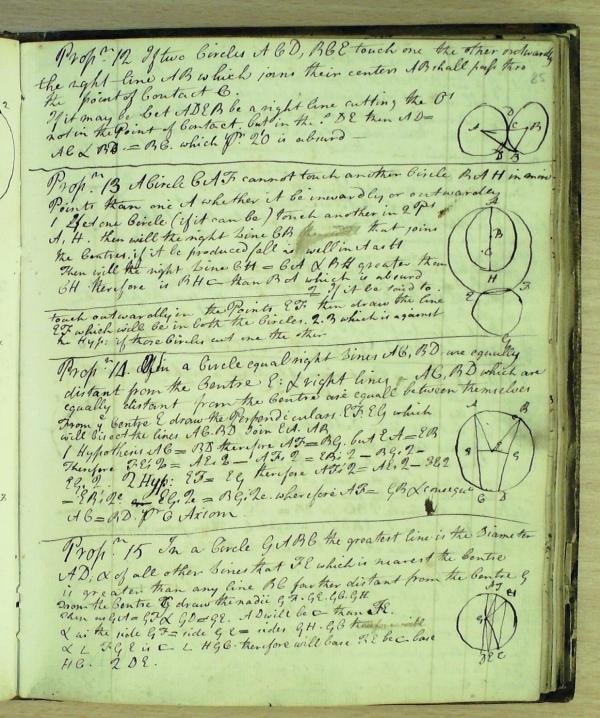 Propn. 12 If two Circles ACD, BCE touch one the other outwardly
the right-line AB which joins their centers AB shall pass thro
the point of Contact C.
85
If it may be Let ADEB be a right line cutting the Os
not in the Point of Contact, but in the DE then AD=
AC & BD = BC. which pr. 20 is absurd
Propn. 13 A Circle CAF cannot touch another Circle BAH in more
Points than one A whether it be inwardly or outwardly
1 Let one Circle (if it can be) touch another in 2 Pts
A, H. then will the right Line CB that joins
the Centres, if it be produced fall as well in A as H
Then will the right Lines CH = CA & BH greater than
CH therefore is BH than BA which is absurd
2 if it be said to
touch outwardly in the Points EF then draw the line
EF which will be in both the Circles. 2.3 which is against
the Hyp: if those Circles cut one the other
Propn. 14. in a Circle equal right Lines AC, BD are equally
distant from the Centre E: & right lines AC, BD which are
equally distant from the Centre are equall between themselves
From ye Centre E draw the Perpendiculars EF EG which
will bisect the lines AC. BD Join EA. AB
1 Hypothesis AC = BD therefore AF = BG. but EA = EB
Therefore FEq2 = AEq2 - AFq2 = EBq2 - BGq2 -
EGq2. 2 Hyp: EF = EG therefore AFq2 = AEq2 - FEq2
= EBq2 - EGq2 = BGq2. wherefore AF = GB & consequ
AC = BD. pr 6 Axiom
Propn. 15 In a Circle GABC the greatest line is the Diameter
AD; & of all other Lines that FE which is nearest the Centre
is greater than any line BC farther distant from the Centre G
From the Centre G draw the radii GF. GE. GB. GH
then as GA = GF & GD = GE. AD will be than FE.
& as the side GF = side GE = sides GH. GB
& L FGE is L HGC. therefore will base FE be base
HC. 2 DE.